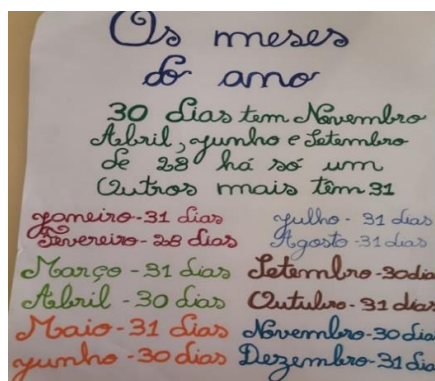 Os meses
do ano
30 dias tem Novembro
Abril, junho e Setembro
de 28 há só um
Outros mais têm 31
janeiro - 31 dias
Fevereiro - 28 dias
Março - 31 dias
Abril - 30 dias
Maio - 31 dias
junho - 30 dias
julho - 31 dias
Agosto - 31 dias
Setembro - 30 dia
Outubro - 31 dias
Novembro - 30 dia
Dezembro - 31 dia